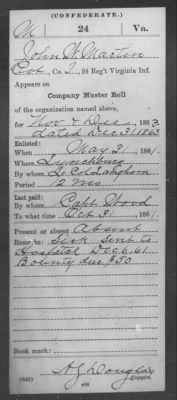 (CONFEDERATE.)
M 24 Va.
John W. Martin
Pvt, Co. I, 24 Reg't Virginia Inf.
Appears on
Company Muster Roll
of the organization named above,
for Nov & Dec, 1863.
dated Dec 31 1863
Enlisted:
When May 31, 1861.
Where Lynchburg
By whom Lt Col Langhorn
Period 12 mos
Last paid:
By whom Capt Wood
To what time Oct 31, 1861.
Present or absent Absent
Remarks: Sick Sent to
Hospital Dec 6, 61
Bounty due $50
Book mark:
A J Douglas
(642) Copyist.